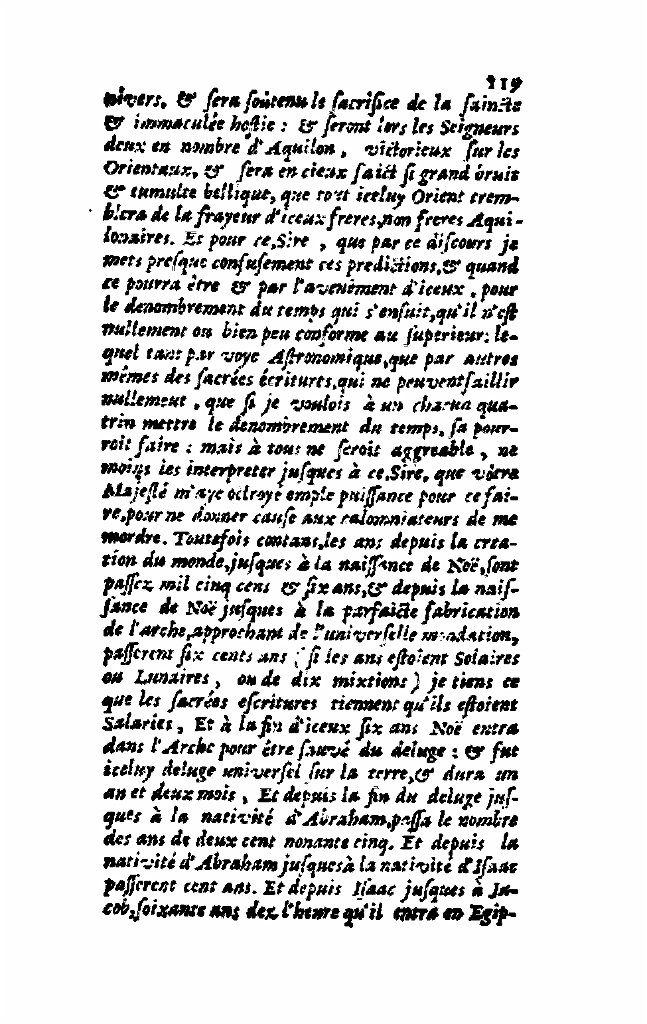 119
nivers, & sera soûtenu le sacrifice de la saincte
& immaculée hostie : & seront lors les Seigneurs
deux en nombre d'Aquilon, victorieux sur les
Orientaux, & sera en cieux faict si grand bruit
& tumulte bellique, que tout iceluy Orient trem-
blera de la frayeur d'iceux freres, non freres Aqui-
lonaires. Et pour ce, Sire , que par ce discours je
mets presque confusement ces predictions, & quand
ce pourra être & par l'avenement d'iceux , pour
le denombrement du temps qui s'ensuit, qu'il n'est
nullement ou bien peu conforme au superieur: le-
quel tant par voye Astronomique, que par autres
mêmes des sacrées écritures, qui ne peuvent faillir
nullement , que si je voulois à un chacun qua-
trin mettre le denombrement du temps, sa pour-
roit faire : mais à tous ne seroit aggreable , ne
moins les interpreter jusques à ce, Sire, que vôtre
Majesté m'aye octroyé emple puissance pour ce fai-
re, pour ne donner cause aux calomniateurs de me
mordre. Toutefois contans, les ans depuis la crea-
tion du monde, jusques à la naissance de Noë, sont
passez mil cinq cens & six ans, & depuis la nais-
sance de Noë jusques à la parfaicte fabrication
de l'arche, approchant de l'universelle inondation,
passerent six cents ans ( si les ans estoient Solaires
ou Lunaires , ou de dix mixtions ) je tiens ce
que les sacrées escritures tiennent qu'ils estoient
Salaries , Et à la fin d'iceux six ans Noë entra
dans l'Arche pour être sauvé du deluge : & fut
iceluy deluge universel sur la terre, & dura un
an et deux mois , Et depuis la fin du deluge jus-
ques à la nativité d'Abraham, passa le nombre
des ans de deux cent nonante cinq. Et depuis la
nativité d'Abraham jusques à la nativité d'Isaac
passerent cent ans. Et depuis Isaac jusques à Ja-
cob, soixante ans dez l'heure qu'il entra en Egip-